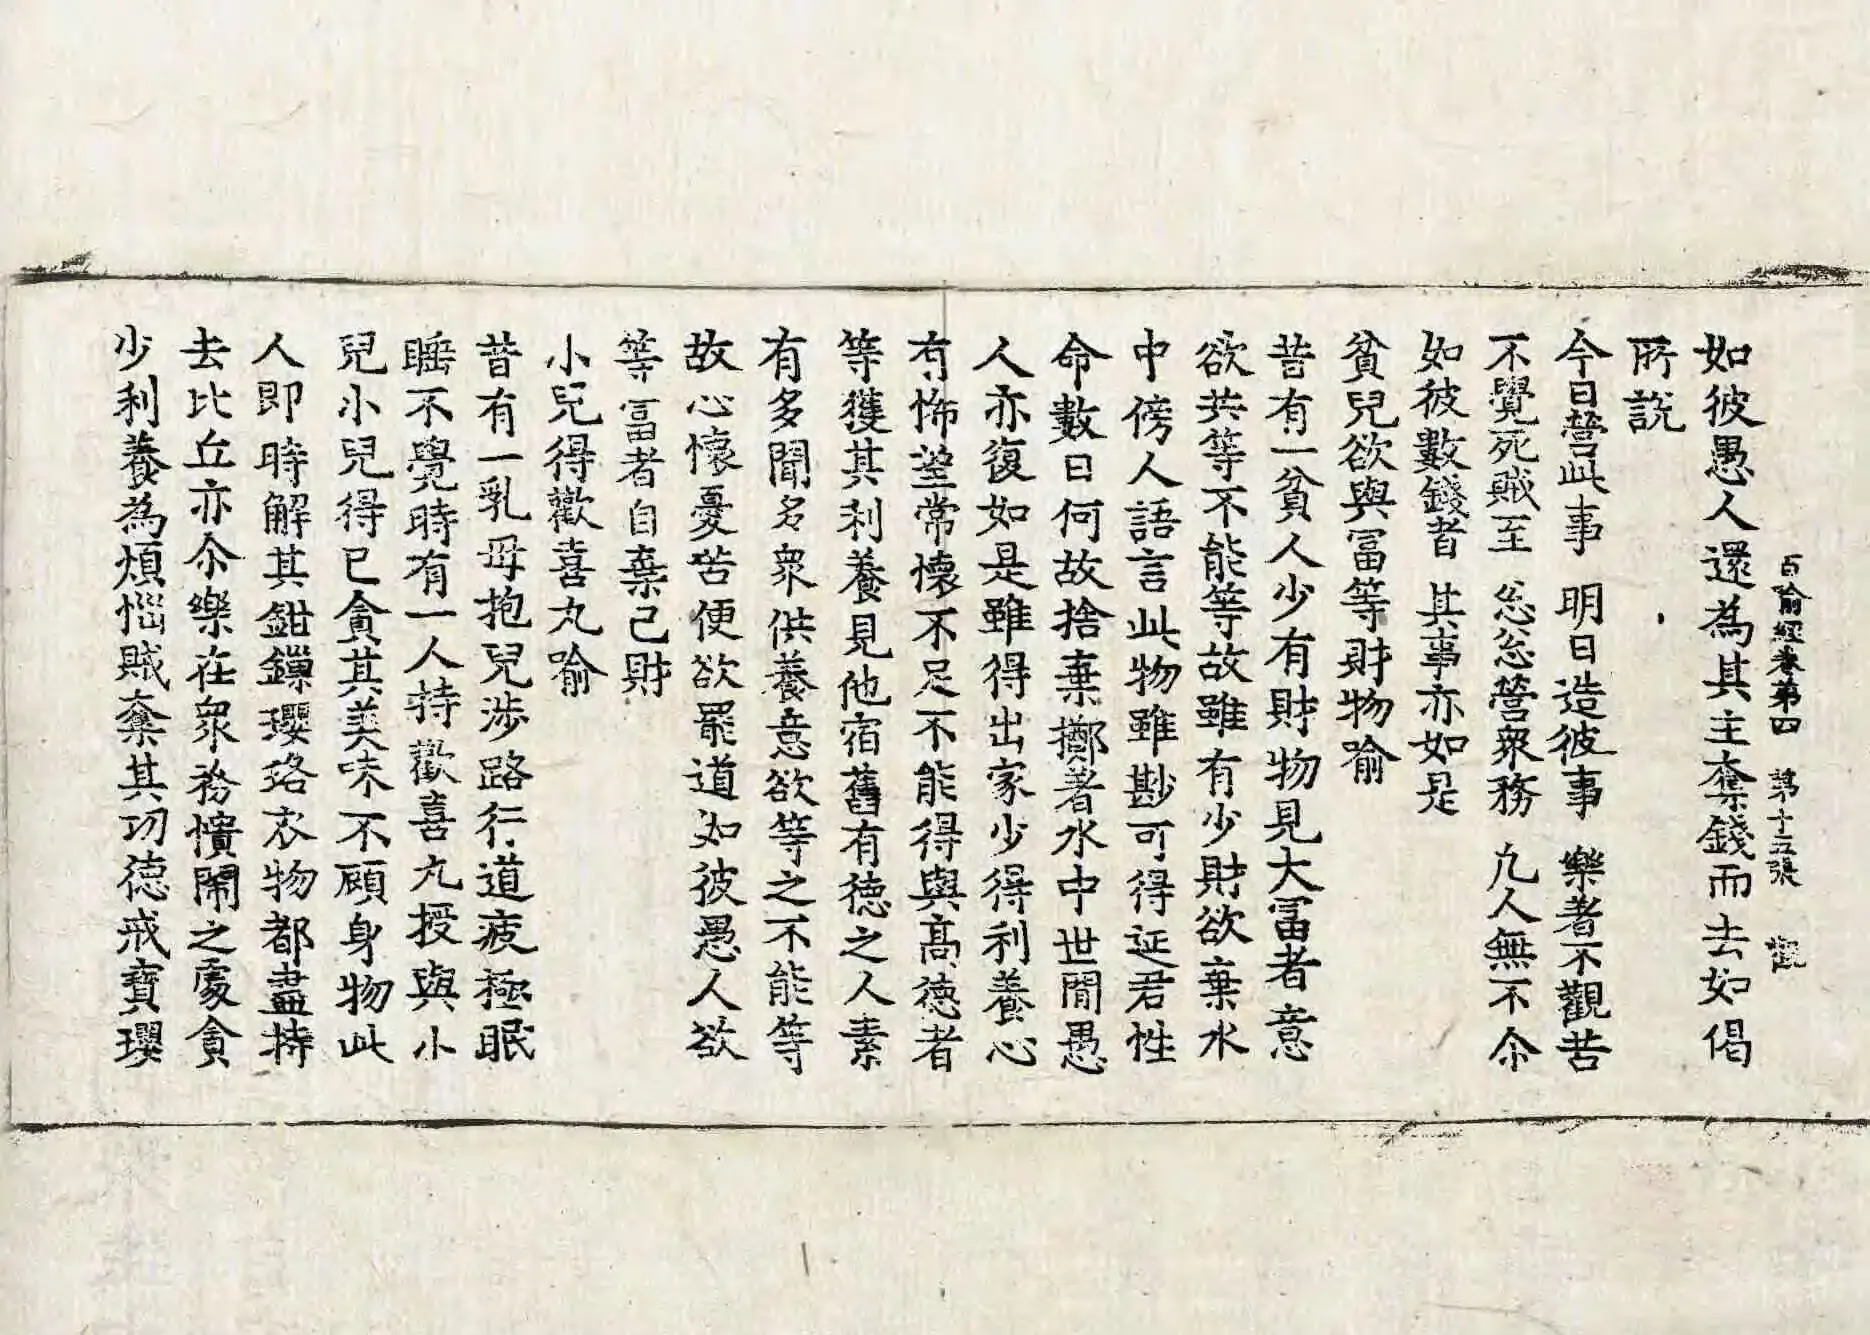 百喻經卷第四　第十五張　觀
如彼愚人還為其主奪錢而去如偈
所說
今日營此事　明日造彼事　樂著不觀苦
不覺死賊至　忩忩營衆務　凡人無不尒
如彼數錢者　其事亦如是
貧兒欲與冨等財物喻
昔有一貧人少有財物見大冨者意
欲共等不能等故雖有少財欲棄水
中傍人語言此物雖尠可得延君性
命數日何故捨棄擲著水中世間愚
人亦復如是雖得出家少得利養心
有怖望常懷不足不能得與高德者
等獲其利養見他宿舊有德之人素
有多聞多衆供養意欲等之不能等
故心懷憂苦便欲罷道如彼愚人欲
等冨者自棄己財
小兒得歡喜丸喻
昔有一乳母抱兒涉路行道疲極眠
睡不覺時有一人持歡喜丸授與小
兒小兒得已貪其美味不顧身物此
人即時解其鉗鏁瓔珞衣物都盡持
去比丘亦尒樂在衆務憒閙之處貪
少利養為煩惱賊奪其功德戒寶瓔